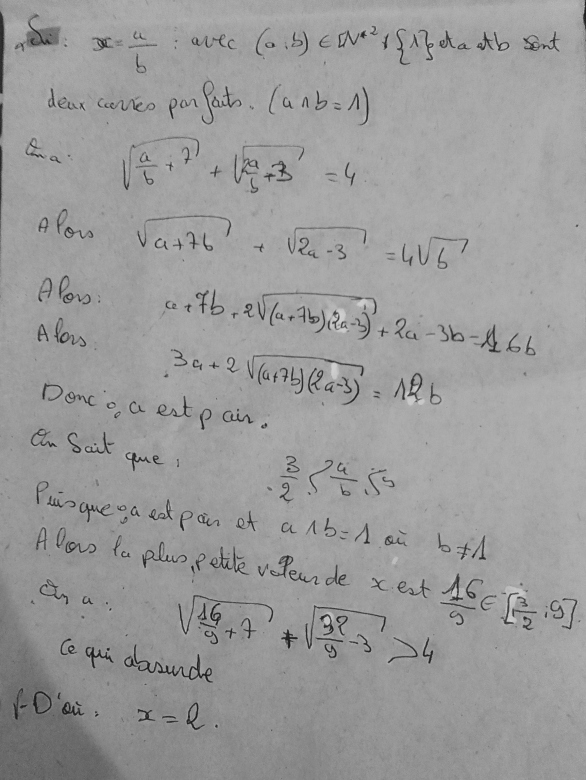 Si : x = a/b : avec (a,b) ∈ ℕ*² \ {1} et a et b sont
deux carrés parfaits. (a ∧ b = 1)
On a : √(a/b + 7) + √(2a/b - 3) = 4
Alors √(a+7b) + √(2a-3) = 4√b
Alors : a + 7b + 2√((a+7b)(2a-3)) + 2a - 3b = 16b
Alors
3a + 2√((a+7b)(2a-3)) = 12b
Donc : a est pair.
On Sait que : 3/2 ≤ a/b ≤ 9
Puisque : a est pair et a ∧ b = 1 où b ≠ 1
Alors la plus petite valeur de x est 16/9 ∈ [3/2 ; 9]
On a : √(16/9 + 7) + √(32/9 - 3) > 4
Ce qui absurde
D'où : x = 2.